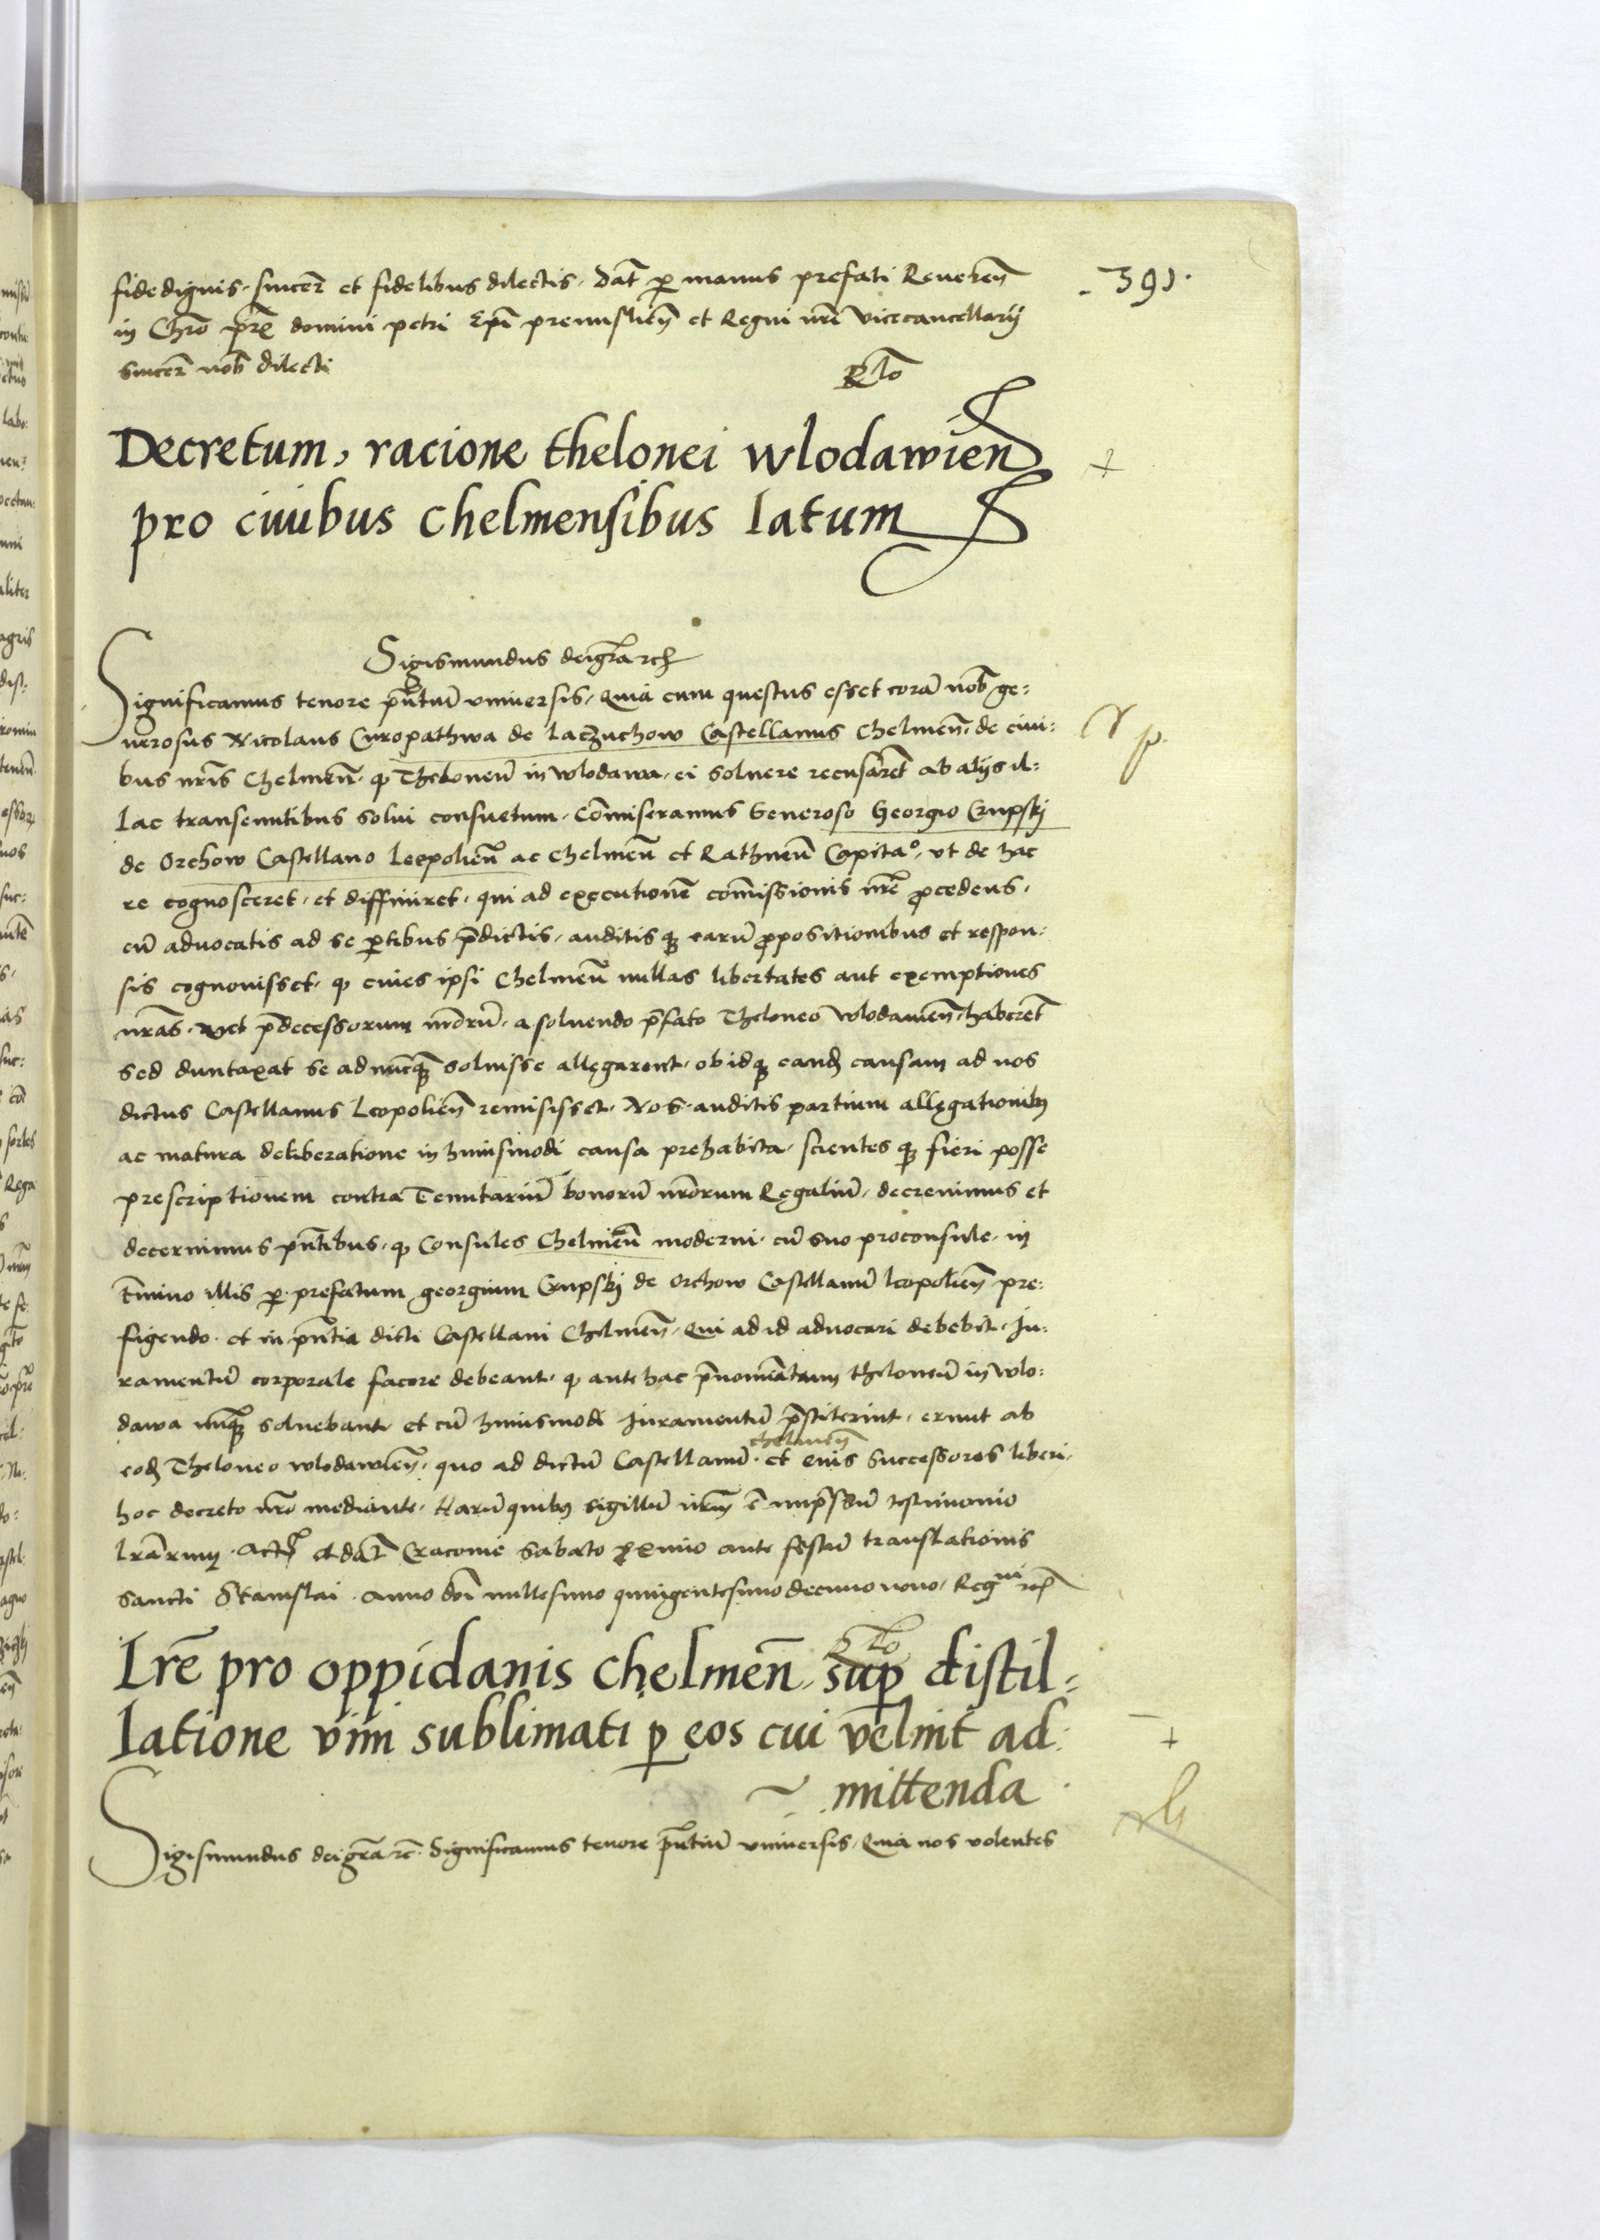 fidedignis. sincer̄ et fidelibus dilectis. Dat̄ ꝑ manus prefati Reveren̄
in Chr̄o pr̄is domini petri Ep̄i premislien̄ et Regni nr̄i vicecancellarij
sincer̄ nob̄ dilecti
Rl̄o
391.
Decretum, racione thelonei wlodawien̄
pro civibus Chelmensibus latum
Sigismundus dei gr̄a rex
Significamus tenore pn̄tiū universis. Quia cum questus esset corā nob̄ ge:
nerosus Nicolaus Curopathwa de Laczuchow Castellanus Chelmen̄. de civi:
bus nr̄is Chelmen̄. ꝙ Theloneū in Wlodawa. ei solvere recusarēt ab alijs il:
lac transeuntibus solvi consuetum. Cōmiseramus Generoso Georgio Crupskj
de Orchow Castellano Leopolien̄ ac Chelmen̄ et Rathnen̄ Capitaᵒ. ut de hac
re cognosceret. et diffiniret. qui ad executionē cōmissionis nr̄e ꝓcedens.
cū advocatis ad se ꝑtibus p̄dictis. auditisqꝫ earū ꝓpositionibus et respon:
sis cognovisset. ꝙ cives ipsi Chelmen̄ nullas libertates aut exemptiones
nr̄as. vel p̄decessorum nr̄orū. a solvendo p̄fato Theloneo Wlodawien̄. haberēt
sed duntaxat se ad nuncqꝫ solvisse allegarent. ob idqꝫ eandē causam ad nos
dictus Castellanus Leopolien̄ remisisset. Nos. auditis partium allegationibꝰ
ac matura deliberatione in huiusmodi causa prehabita. scientes qꝫ fieri posse
prescriptionem contra Tenutariū bonorū nr̄orum Regaliū. decrevimus et
decernimus pn̄tibus. ꝙ Consules Chelmen̄ moderni. cū suo proconsule. in
t̄mino illis ꝑ prefatum georgium Crupskj de Orchow Castellanū leopolien̄ pre:
figendo. et in pn̄tia dicti Castellani Chelmen̄. qui ad id advocari debebit. Iu:
ramentū corporale facere debeant. ꝙ ante hac p̄nominatum theloneū in Wlo:
dawa nunqꝫ solvebant et cū huiusmodi Iuramentū p̄stiterint. erunt ab
chelmen̄
eodē Theloneo wlodawien̄. quo ad dictū Castellanū. et eius Successores liberi.
hoc decreto nr̄o mediante. Harū quibꝰ sigillū nr̄um ē imp̄ssū testimonio
lr̄arum. Actū et dat̄ Cracovie Sabato ꝓximo ante festū translationis
Sancti Stanislai. Anno dn̄i millesimo quingentesimo decimo nono. Regni rc̄
Rl̄o
Lr̄e pro oppidanis Chelmen̄. suꝑ distil:
latione vini sublimati ꝑ eos cui velint ad:
mittenda
Sigismundus dei gr̄a rc̄. Significamus tenore pn̄tiū universis. Quia nos volentes